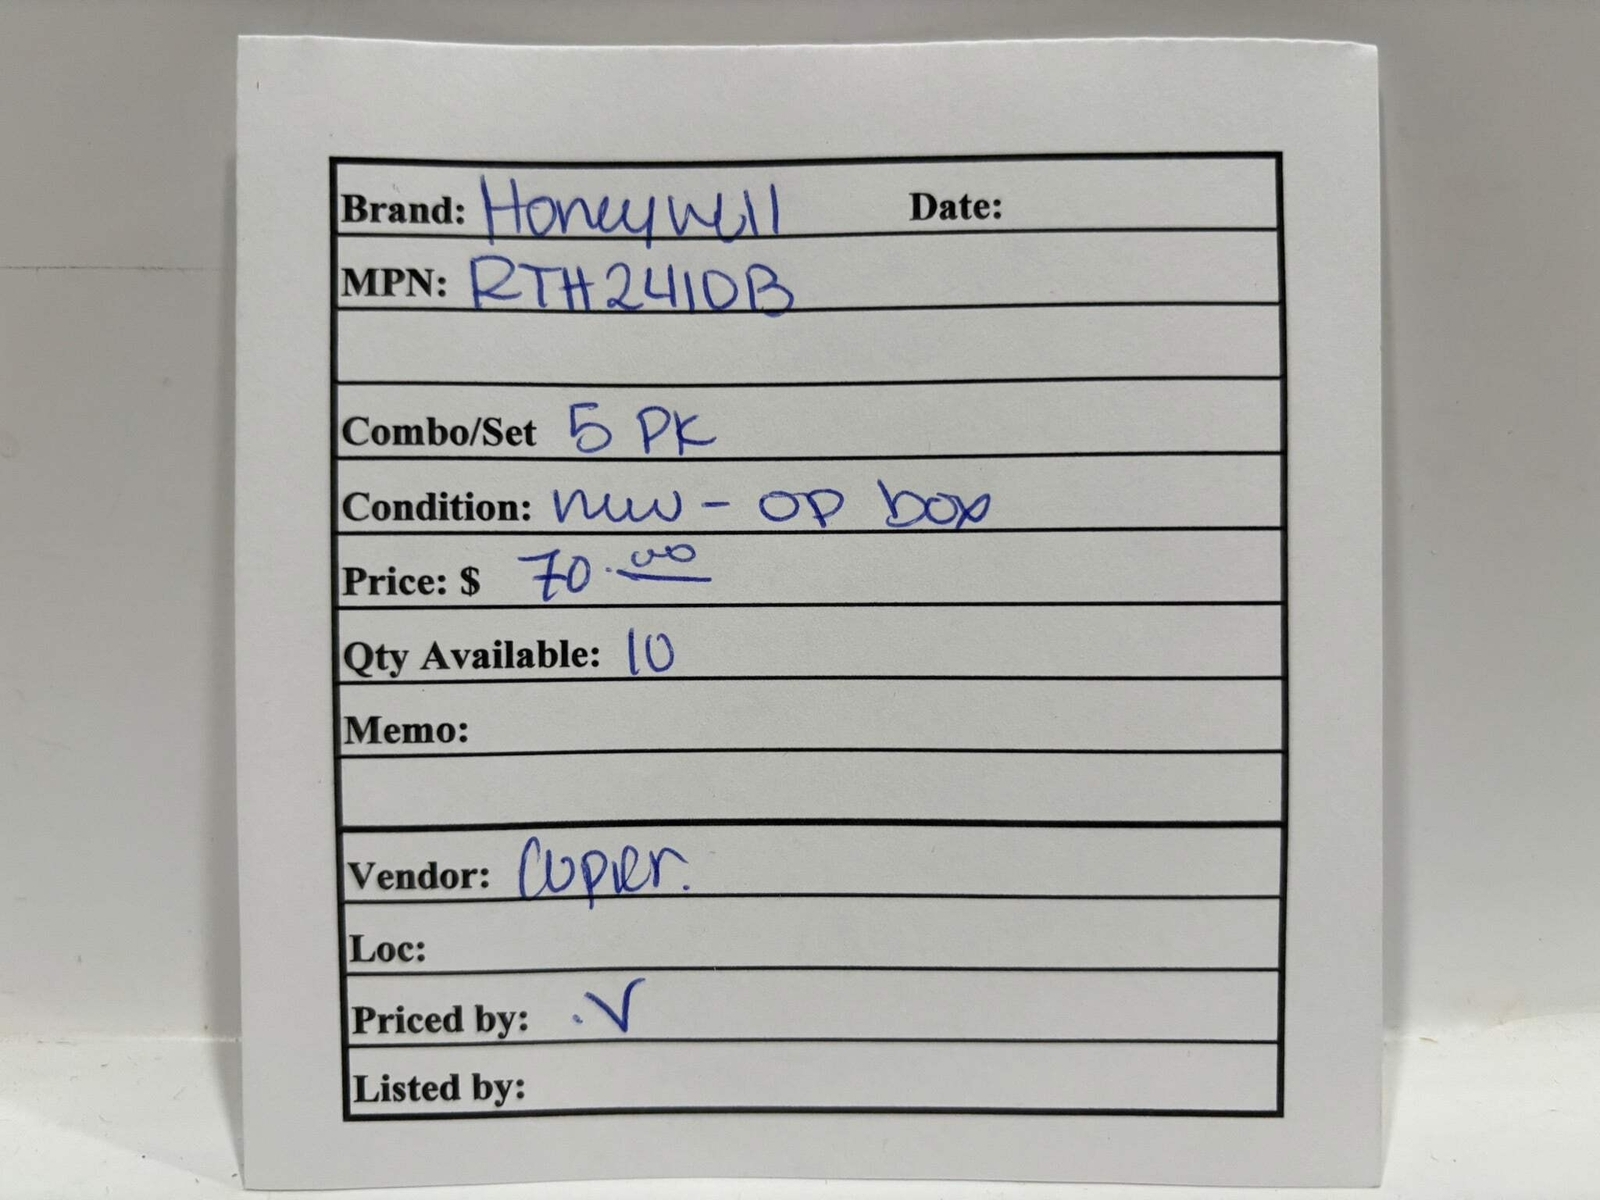 Brand: Honeywell Date:
MPN: RTH2410B
Combo/Set 5 PK
Condition: new - op box
Price: $ 70.00
Qty Available: 10
Memo:
Vendor: Copier.
Loc:
Priced by: .V
Listed by: